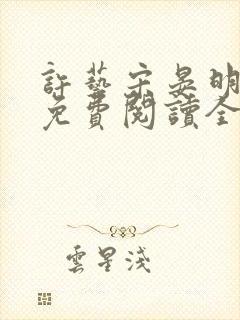 許藝宋晏明
免費閱讀全
雲星淺